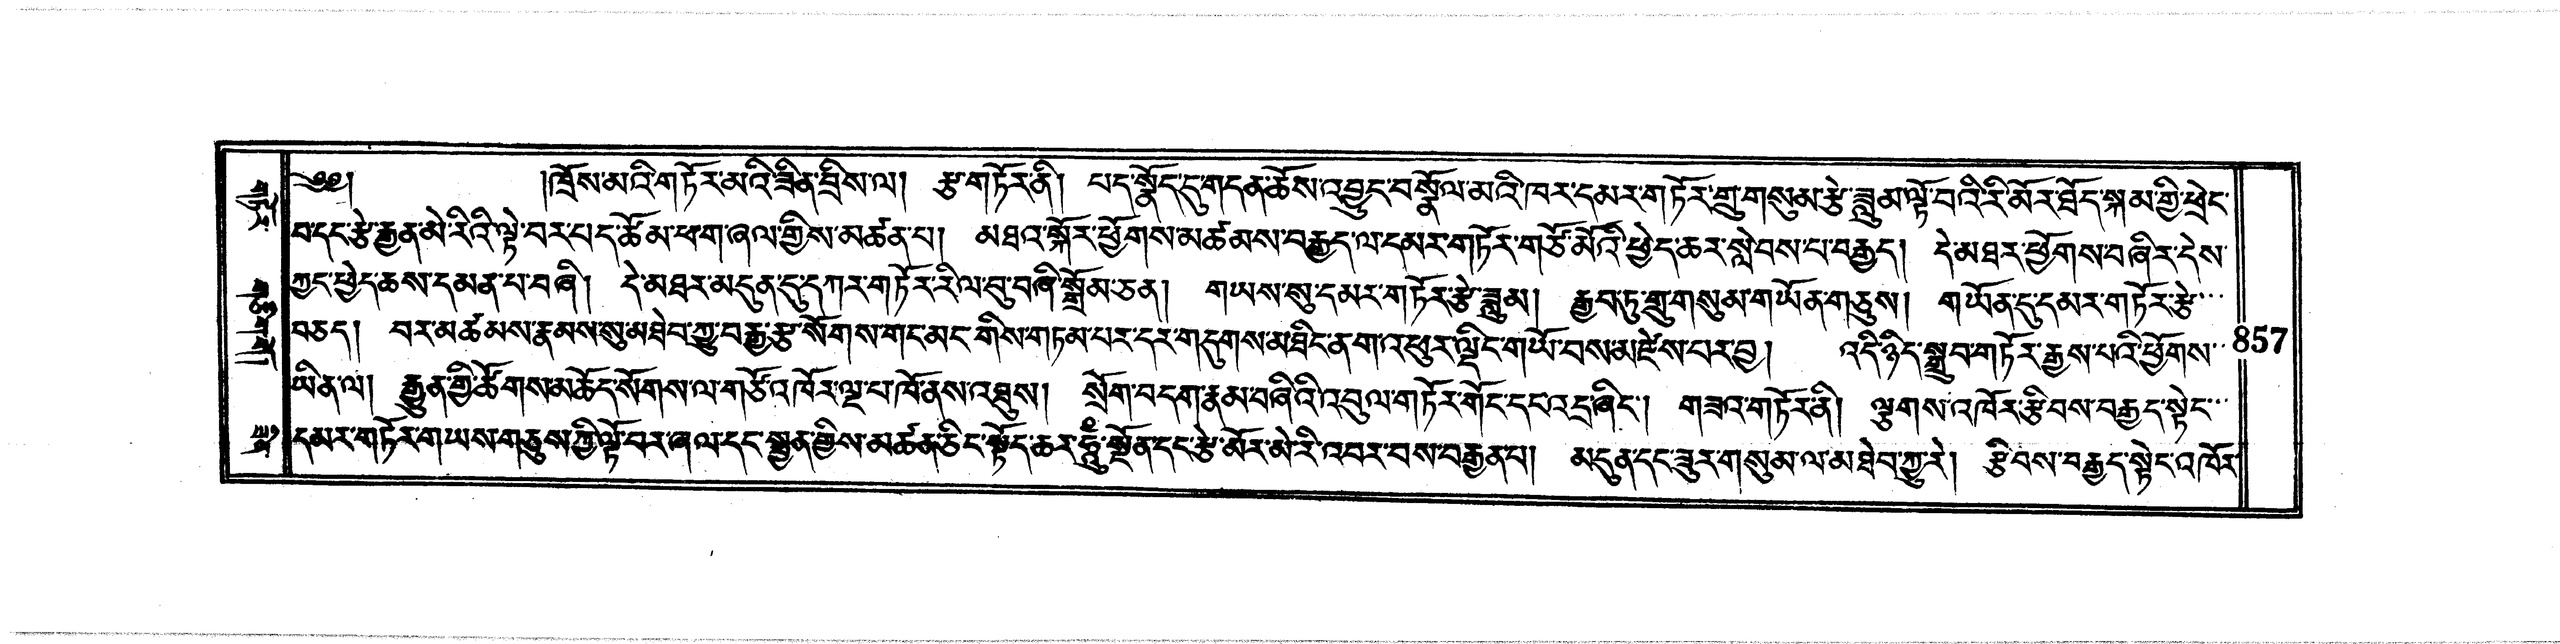 ༄༅། །ཁྲོས་མའི་གཏོར་མའི་ཟིན་བྲིས་ལ། རྩ་གཏོར་ནི། པད་སྣོད་དུ་གདན་ཆོས་འབྱུང་བསྣོལ་མའི་ཁར་དམར་གཏོར་གྲུ་གསུམ་རྩེ་ཟླུམ་ལྟོ་བའི་རི་མོར་ཐོད་སྐམ་གྱི་ཕྲེང་
བ་དང་རྩེ་རྒྱན་མེ་རིའི་ལྟེ་བར་པད་ཚོམ་ཕག་ཞལ་གྱིས་མཚན་པ། མཐའ་སྐོར་ཕྱོགས་མཚམས་བརྒྱད་ལ་དམར་གཏོར་གཙོ་མོའི་ཕྱེད་ཆར་སླེབས་པ་བརྒྱད། དེ་མཐར་ཕྱོགས་བཞིར་དེས་
ཀྱང་ཕྱེད་ཆས་དམན་པ་བཞི། དེ་མཐར་མདུན་དུ་དཀར་གཏོར་རིལ་བུ་བཞི་སྒྲོམ་ཅན། གཡས་སུ་དམར་གཏོར་རྩེ་ཟླུམ། རྒྱབ་ཏུ་གྲུ་གསུམ་གཡོན་གཅུས། གཡོན་དུ་དམར་གཏོར་རྩེ་
བཅད། བར་མཚམས་རྣམས་སུ་མཐེབ་ཀྱུ་བརྒྱ་རྩ་སོགས་གང་མང་གིས་གཏམ་པར་དར་གདུགས་མཐིང་ནག་འཕུར་ལྡིང་གཡོ་བས་མཛེས་པར་བྱ། འདི་ཉིད་སྒྲུབ་གཏོར་རྒྱས་པའི་ཕྱོགས་
ཡིན་ལ། རྒྱུན་གྱི་ཚོགས་མཆོད་སོགས་ལ་གཙོ་འཁོར་ལྔ་པ་ཁོནས་འཐུས། སྲོག་བདག་རྣམ་བཞིའི་འབུལ་གཏོར་གོང་དང་འདྲ་ཞིང་། གཟའ་གཏོར་ནི། ལྕགས་འཁོར་རྩིབས་བརྒྱད་སྟེང་
དམར་གཏོར་གཡས་གཅུས་ཀྱི་ལྟོ་བར་ཞལ་དང་སྤྱན་གྱིས་མཚན་ཅིང་སྟོད་ཆར་ཧཱུྃ་སྔོན་དང་རྩེ་མོར་མེ་རི་འབར་བས་བརྒྱན་པ། མདུན་དང་ཟུར་གསུམ་ལ་མཐེབ་ཀྱུ་རེ། རྩིབས་བརྒྱད་སྟེང་འཁོར་
857